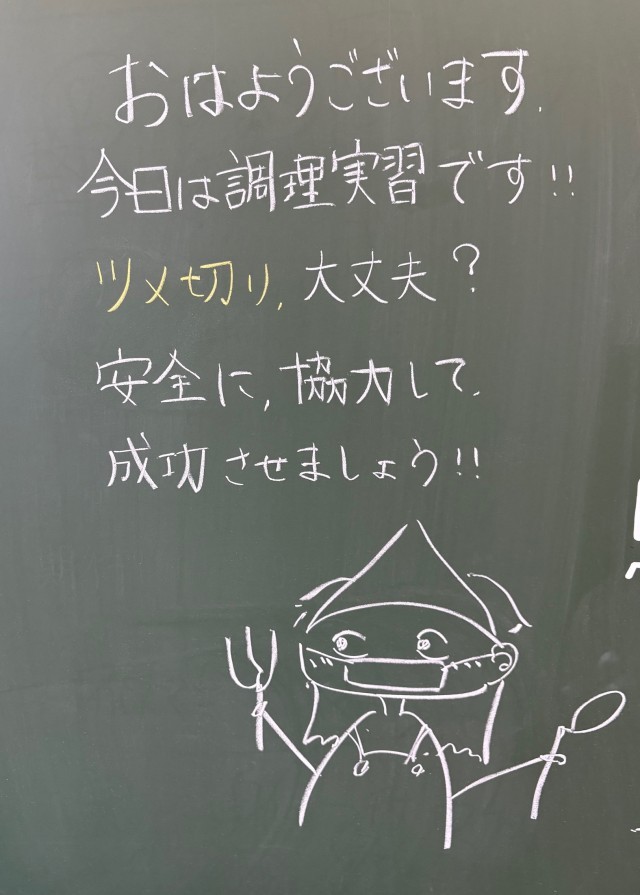 おはようございます.
今日は調理実習です!!
ツメ切り, 大丈夫?
安全に, 協力して,
成功させましょう!!